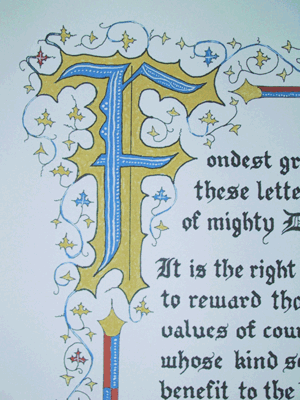 Fondest gr
these lette
of mighty D
It is the right
to reward tho
values of cour
whose kind se
benefit to the